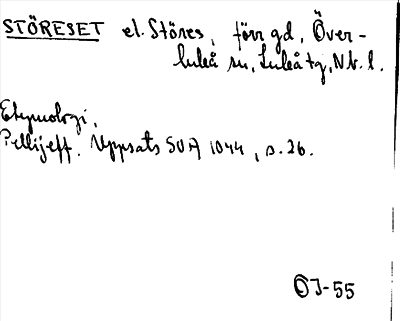 STÖRESET el. Störes, förr gd, Över-
luleå sn, Luleå tg, Nb. l.
Etymologi,
Pellijeff. Uppsats SOA 1044, s. 26.
OJ-55